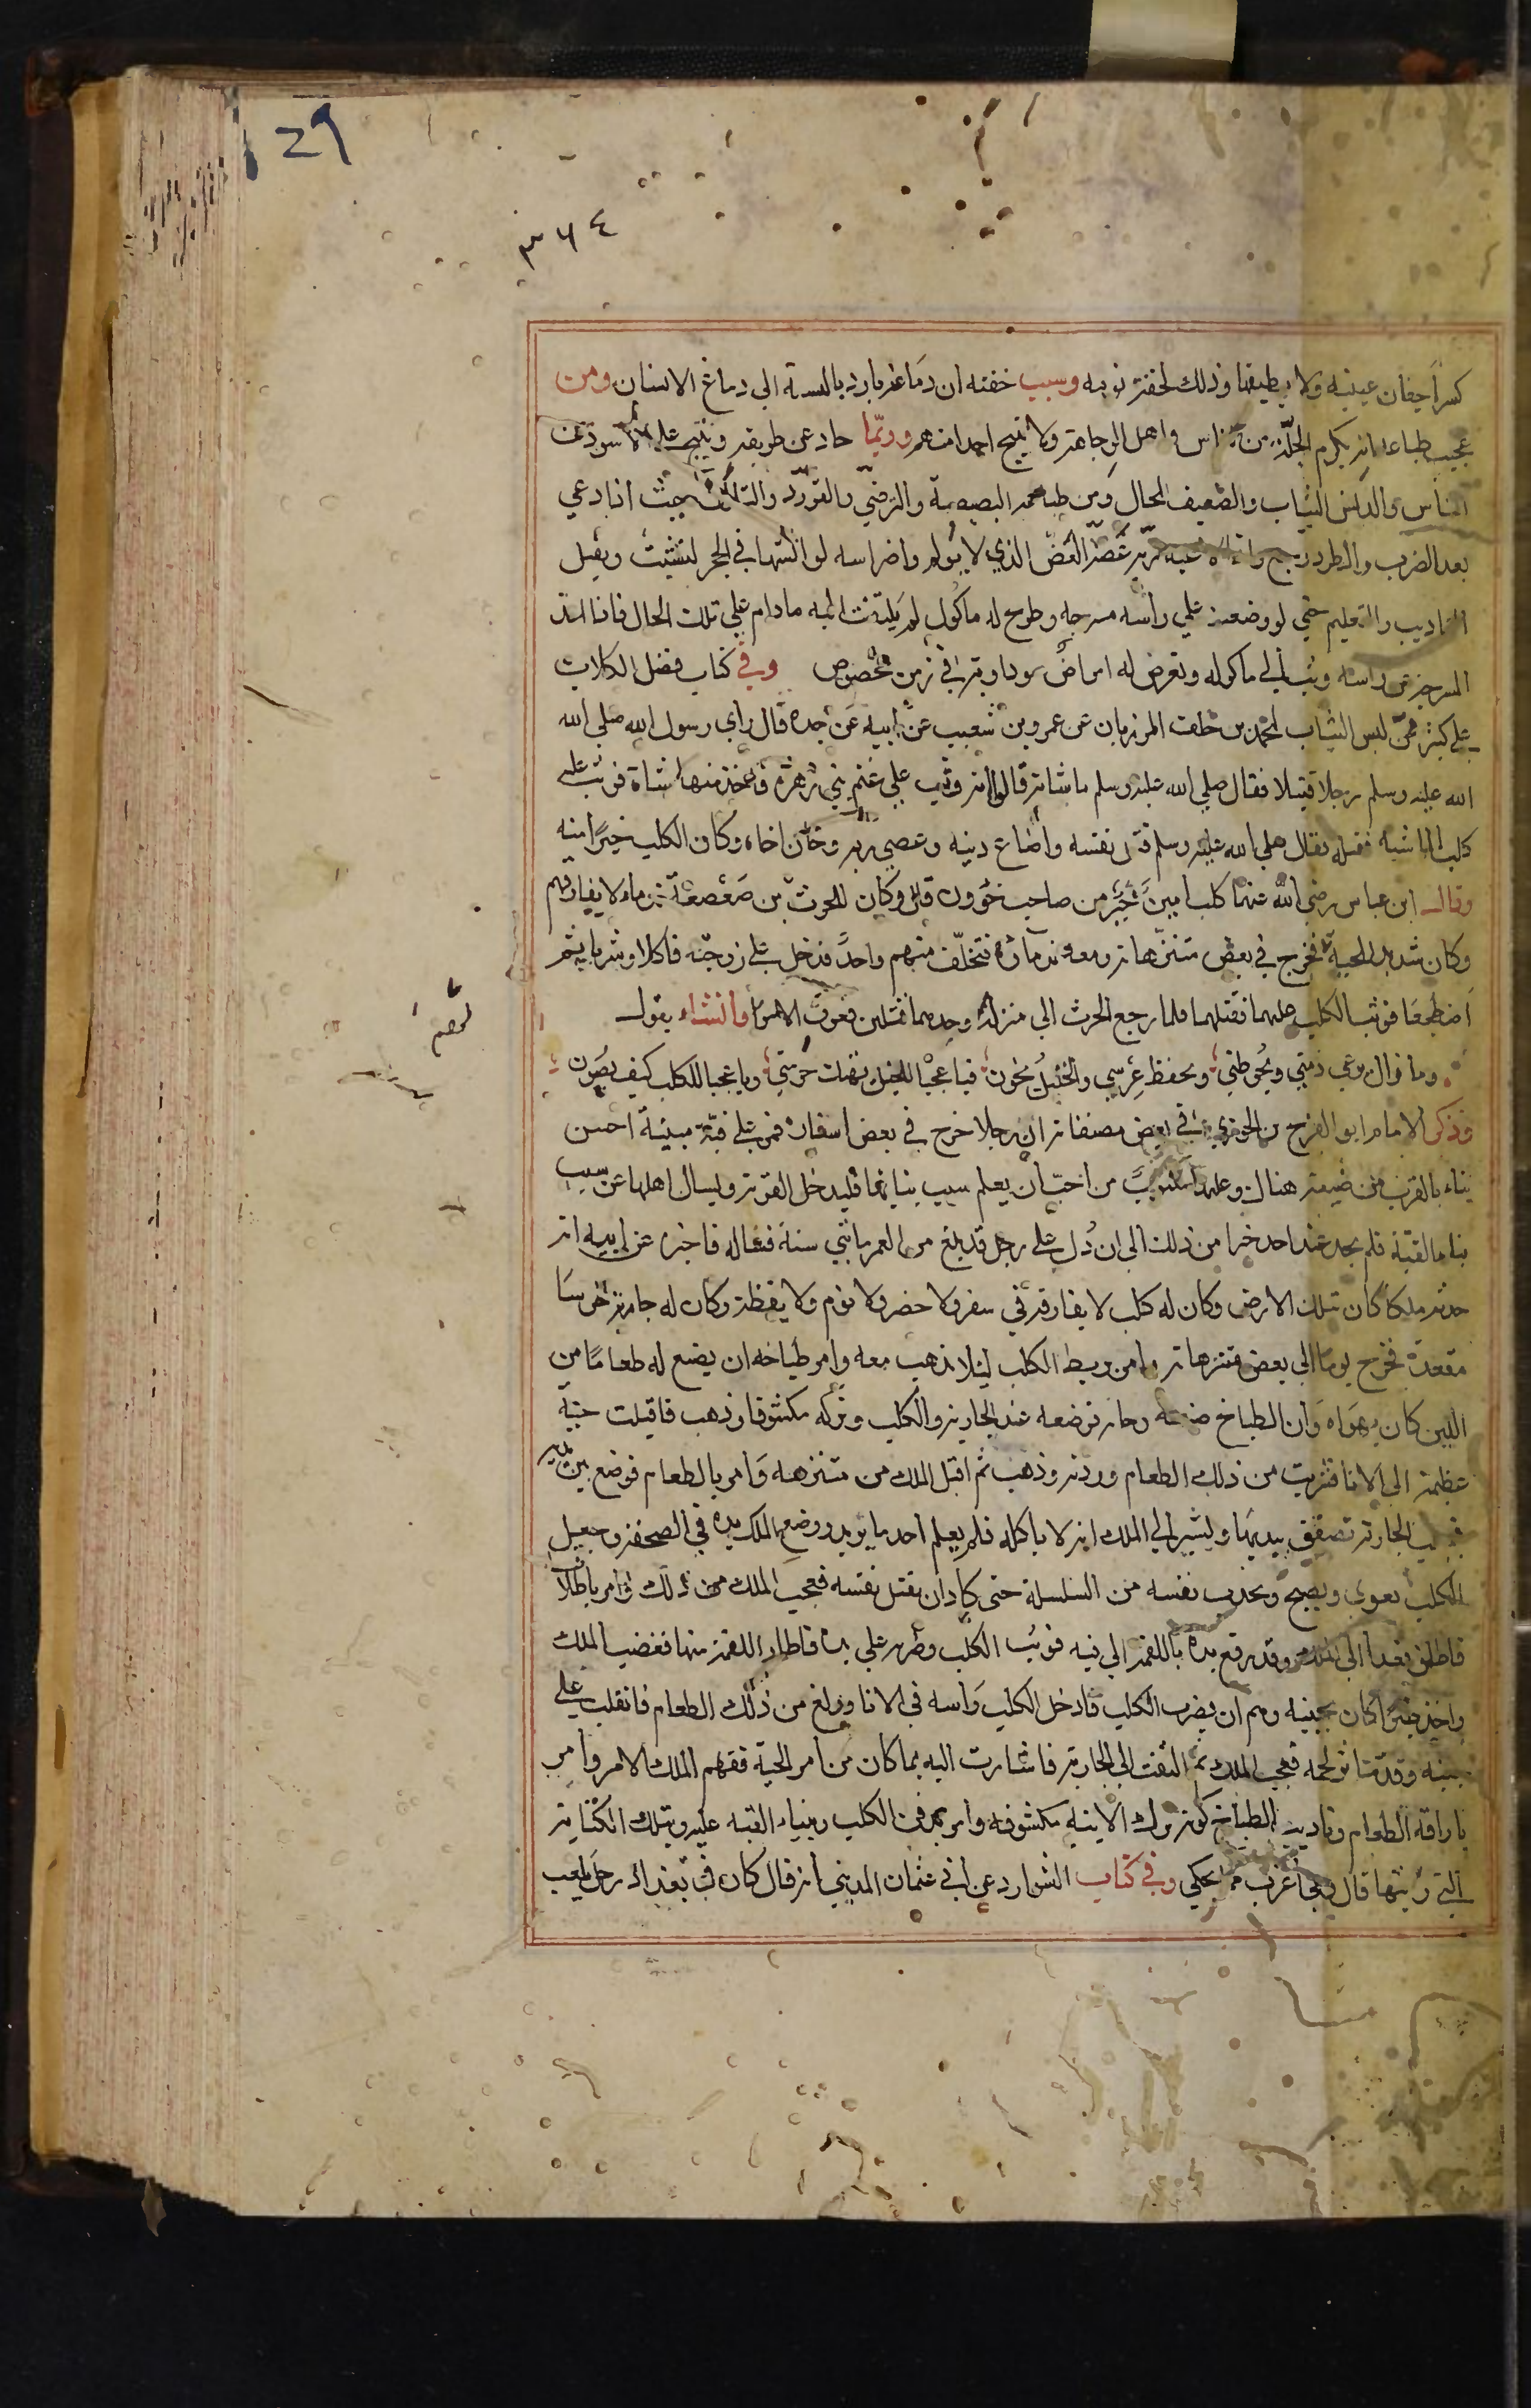 29
٣٦٤
كسر اجفان عينيه ولا يطبقها وذلك لخفة نومه وسبب خفته ان دماغه بارد بالنسبة الي دماغ الانسان ومن
عجيب طباعه انه يكرم الجلّة من الناس واهل الوجاهة ولا ينبح احدا منهم وربّما حاد عن طريقه وينبح علي الاسود من
الناس والدنس الثياب والضعيف الحال ومن طباعه البصبصة والترضّي والتودّد والتالّف بحيث اذا دعي
بعد الضرب والطرد رجع واذا لاعبه ربّه عضّه العضّ الذي لا يؤلم واضراسه لو انشبها في الحجر لنشبت ويقبل
التاديب والتعليم حتي لو وضعت علي راسه مسرجه وطرح له ماكول لم يلتفت اليه مادام علي تلك الحال فاذا اخذت
المسرجة عن راسه وثب الي ماكوله وتعرض له امراض سوداوية في زمن مخصوص وفي كتاب فضل الكلاب
علي كثير ممّن لبس الثياب لمحمد بن خلف المرزبان عن عمرو بن شعيب عن ابيه عن جده قال راي رسول الله صلي الله
الله عليه وسلم رجلا قتيلا فقال صلي الله عليه وسلم ما شانه قالوا انه وثب علي غنم بني زهرة فاخذ منها شاة فوثب عليه
كلب الماشية فقتله فقال صلي الله عليه وسلم قتل نفسه واضاع دينه وعصي ربه وخان اخاه وكان الكلب خيرًا منه
وقال ابن عباس رضي الله عنهما كلب امينٌ خيرٌ من صاحب خؤون قال وكان للحرث بن صعصعة ندماء لا يفارقهم
وكان شديد المحبة لهم فخرج في بعض متنزهاته ومعه ندماؤه فتخلّف منهم واحدٌ فدخل علي زوجته فاكلا وشربا ثم
اضطجعا فوثب الكلب عليهما فقتلهما فلما رجع الحرث الي منزله وجدهما قتيلين فعرف الامر وانشاء يقول
وما زال يرعي ذمتي ويحوطني ويحفظ عرسي والخليل يخون فيا عجبًا للخليل يهتك حرمتي ويا عجبا للكلب كيف يصون
وذكر الامام ابو الفرج بن الجوزي في بعض مصنفاته ان رجلا خرج في بعض اسفاره فمر علي قبّة مبنية احسن
بناء بالقرب من ضيعة هناك وعليها مكتوبٌ من احبّ ان يعلم سبب بنايها فليدخل القرية وليسال اهلها عن سبب
بناء القبّة فلم يجد عند احد خبرا من ذلك الي ان دُل علي رجل قد بلغ من العمر مائتي سنة فساله فاخبره عن ابيه انه
حدثه ملكًا كان بتلك الارض وكان له كلب لا يفارقه في سفر ولا حضر ولا نوم ولا يقظة وكان له جارية خرسا
مقعدة فخرج يومًا الي بعض متنزهاته وامر بربط الكلب ليلا يذهب معه وامر طباخه ان يضع له طعامًا من
اللبن كان يهواه وان الطباخ صنعه وجاء به فوضعه عند الجارية والكلب وتركه مكشوفا وذهب فاقبلت حيّة
عظيمة الي الانا فشربت من ذلك الطعام وردته وذهبت ثم اقبل الملك من متنزهه وامر بالطعام فوضع بين يديه
فجعلت الجارية تصفق بيديها وتشير الي الملك انه لا ياكله فلم يعلم احد ما يريد ووضع الملك يده في الصحفة وجعل
الكلب يعوي ويصيح ويجذب نفسه من السلسلة حتي كاد ان يقتل نفسه فعجب الملك من ذلك وامر باطلا
فاطلق فغدا الي الملك وقد رفع يده باللقمة الي فيه فوثب الكلب وضربه علي يده فاطار اللقمة منها فغضب الملك
واخذ خنجرًا كان بجنبه وهم ان يضرب الكلب فادخل الكلب راسه في الانا وولغ من ذلك الطعام فانقلب علي
جنبه وقد تناثر لحمه فعجب الملك ثم التفت الي الجارية فاشارت اليه بما كان من امر الحية ففهم الملك الامر وامر
باراقة الطعام وتاديب الطباخ كونه ترك الانية مكشوفه وامر بدفن الكلب وبناء القبه عليه وبتلك الكتابة
التي رايتها قال وهي اغرب مما يحكي وفي كتاب الشوارد عن ابي عثمان المديني انه قال كان في بغداد رجل يلعب